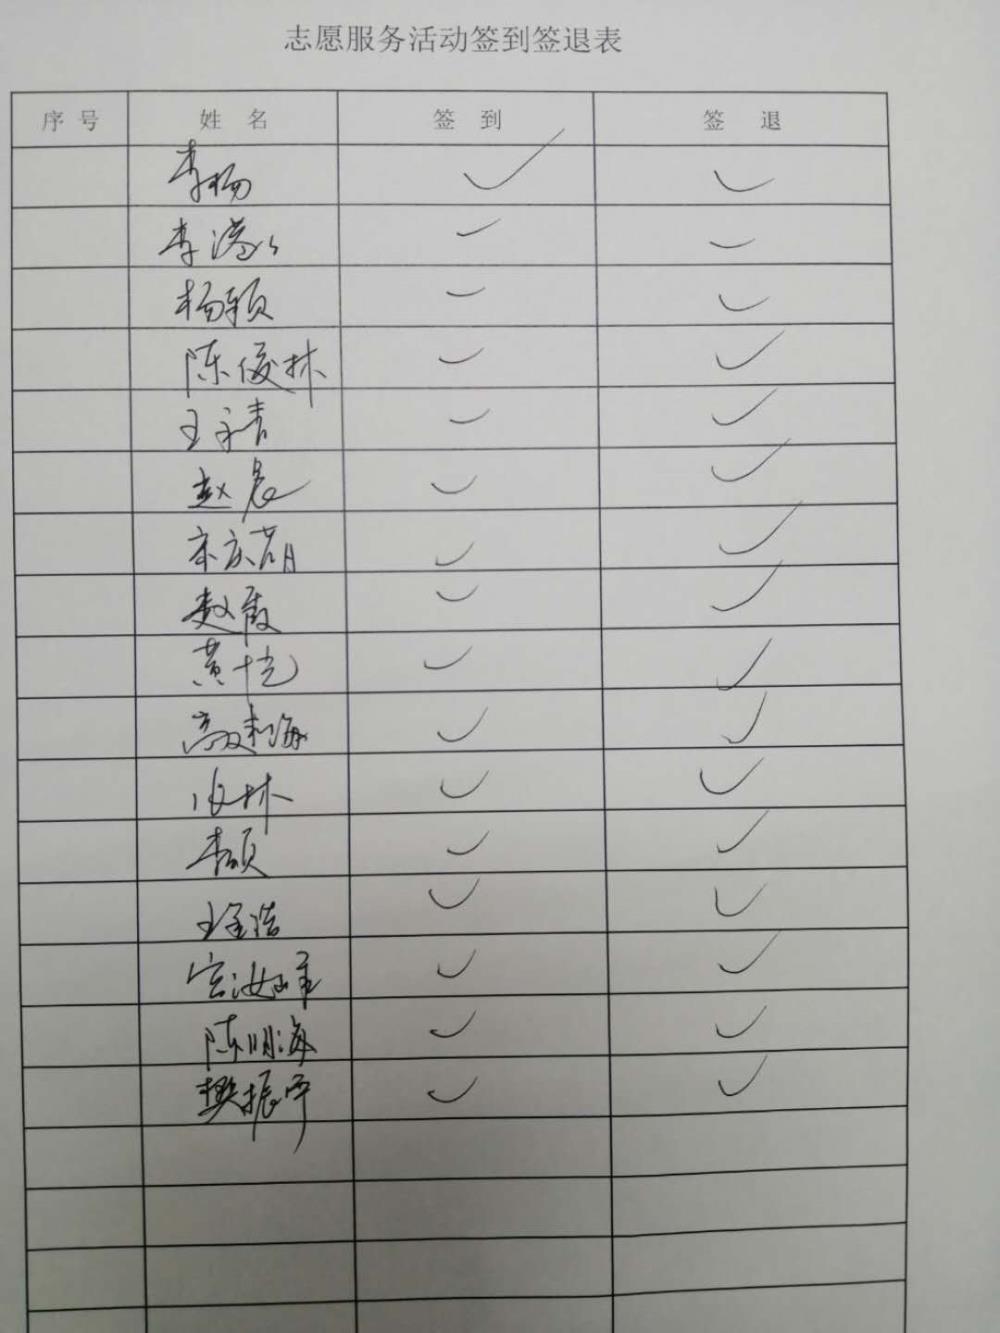 志愿服务活动签到签退表
序号 姓名 签到 签退
李杨 ✓ ✓
李 ✓ ✓
杨颖 ✓ ✓
陈俊林 ✓ ✓
王永青 ✓ ✓
赵晨 ✓ ✓
宋庆萌 ✓ ✓
赵霞 ✓ ✓
黄恺 ✓ ✓
高海 ✓ ✓
林 ✓ ✓
李硕 ✓ ✓
王浩 ✓ ✓
宫汝峰 ✓ ✓
陈明海 ✓ ✓
樊振 ✓ ✓